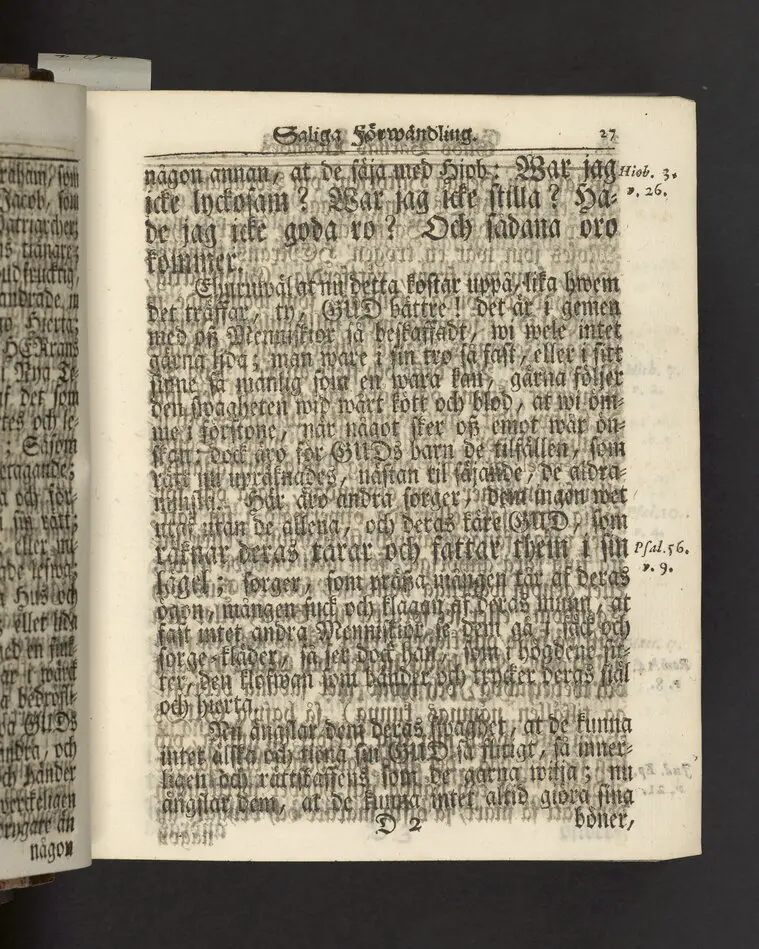 Saliga Förwandling. 27
någon annan, at de säja med Hjob: War jag
icke lyckosam? War jag icke stilla? Ha-
de jag icke goda ro? Och sådana oro
kommer.
Hiob. 3.
v. 26.
Ehuruwäl at nu detta kostar uppå, lika hwem
det träffar, ty, GUD bättre! det är i gemen
med oß Menniskior så beskaffadt, wi wele intet
gärna lida; man ware i sin tro så fast, eller i sitt
sinne så manlig som en wara kan, gärna följer
den swagheten wid wårt kött och blod, at wi öm-
me i förstone, när något sker oß emot wår ön-
skan; dock äro för GUDs barn de tilfällen, som
nu upräknades, nästan til säjande, de aldra-
minsta. Här äro andra sorger, dem ingen wet
utaf utan de allena, och deras käre GUD, som
räknar deras tårar och fattar them i sin
lägel; sorger, som präßa mången tår af deras
ögon, mången suck och klagan af deras munn, at
fast intet andra Menniskior se dem gå i säck och
sorge-kläder, så ser dock han, som i högdene sit-
ter, den klofwan som bänder och trycker deras siäl
och hierta.
Psal. 56.
v. 9.
Nu ängslar dem deras swaghet, at de kunna
intet älska och tiena sin GUD så flitigt, så inner-
ligen och rättskaffens som de gärna wilja; nu
ängslar dem, at de kunna intet altid giöra sina
D 2 böner,
som
Jacob, som
Hierta;
HERrans
Nya Te-
af det som
och le-
Såsom
och för-
i sin rätt;
eller
Hus och
eller lida
GUDs
och
händer
än
någon